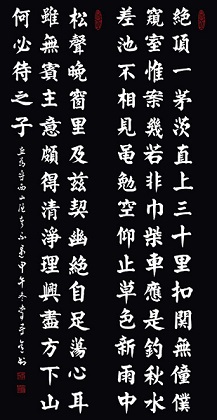 絕頂一茅茨直上三十里扣關無僮僕
窺室惟案幾若非巾柴車應是釣秋水
差池不相見黽勉空仰止草色新雨中
松聲晚窗里及茲契幽絕自足蕩心耳
雖無賓主意頗得清淨理興盡方下山
何必待之子
丘為尋西山隱者不遇甲午冬